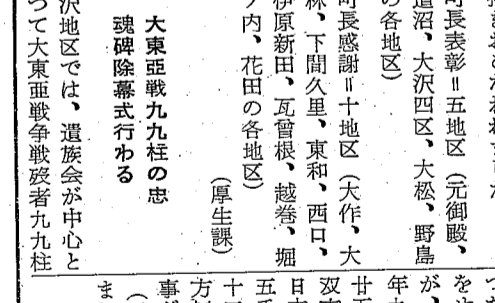 町長表彰=五地区(元御殿、
道沼、大沢四区、大松、野島
の各地区)
町長感謝=十地区(大作、大
林、下間久里、東和、西口、
伊原新田、瓦曾根、越巻、堀
ノ内、花田の各地区)
(厚生課)
大東亜戦九九柱の忠
魂碑除幕式行わる
沢地区では、遺族会が中心と
つて大東亜戦争戦歿者九九柱
つ
を
が、
年
廿
双
日
五
十
方
事
ま